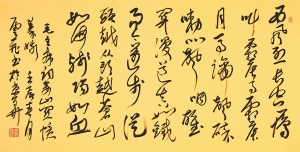 西风烈长空雁
叫霜晨月霜晨
月马蹄声碎
喇叭声咽雄
关漫道真如铁
而今迈步从
头越从头越苍山
如海残阳如血
毛主席词娄山关忆
秦娥